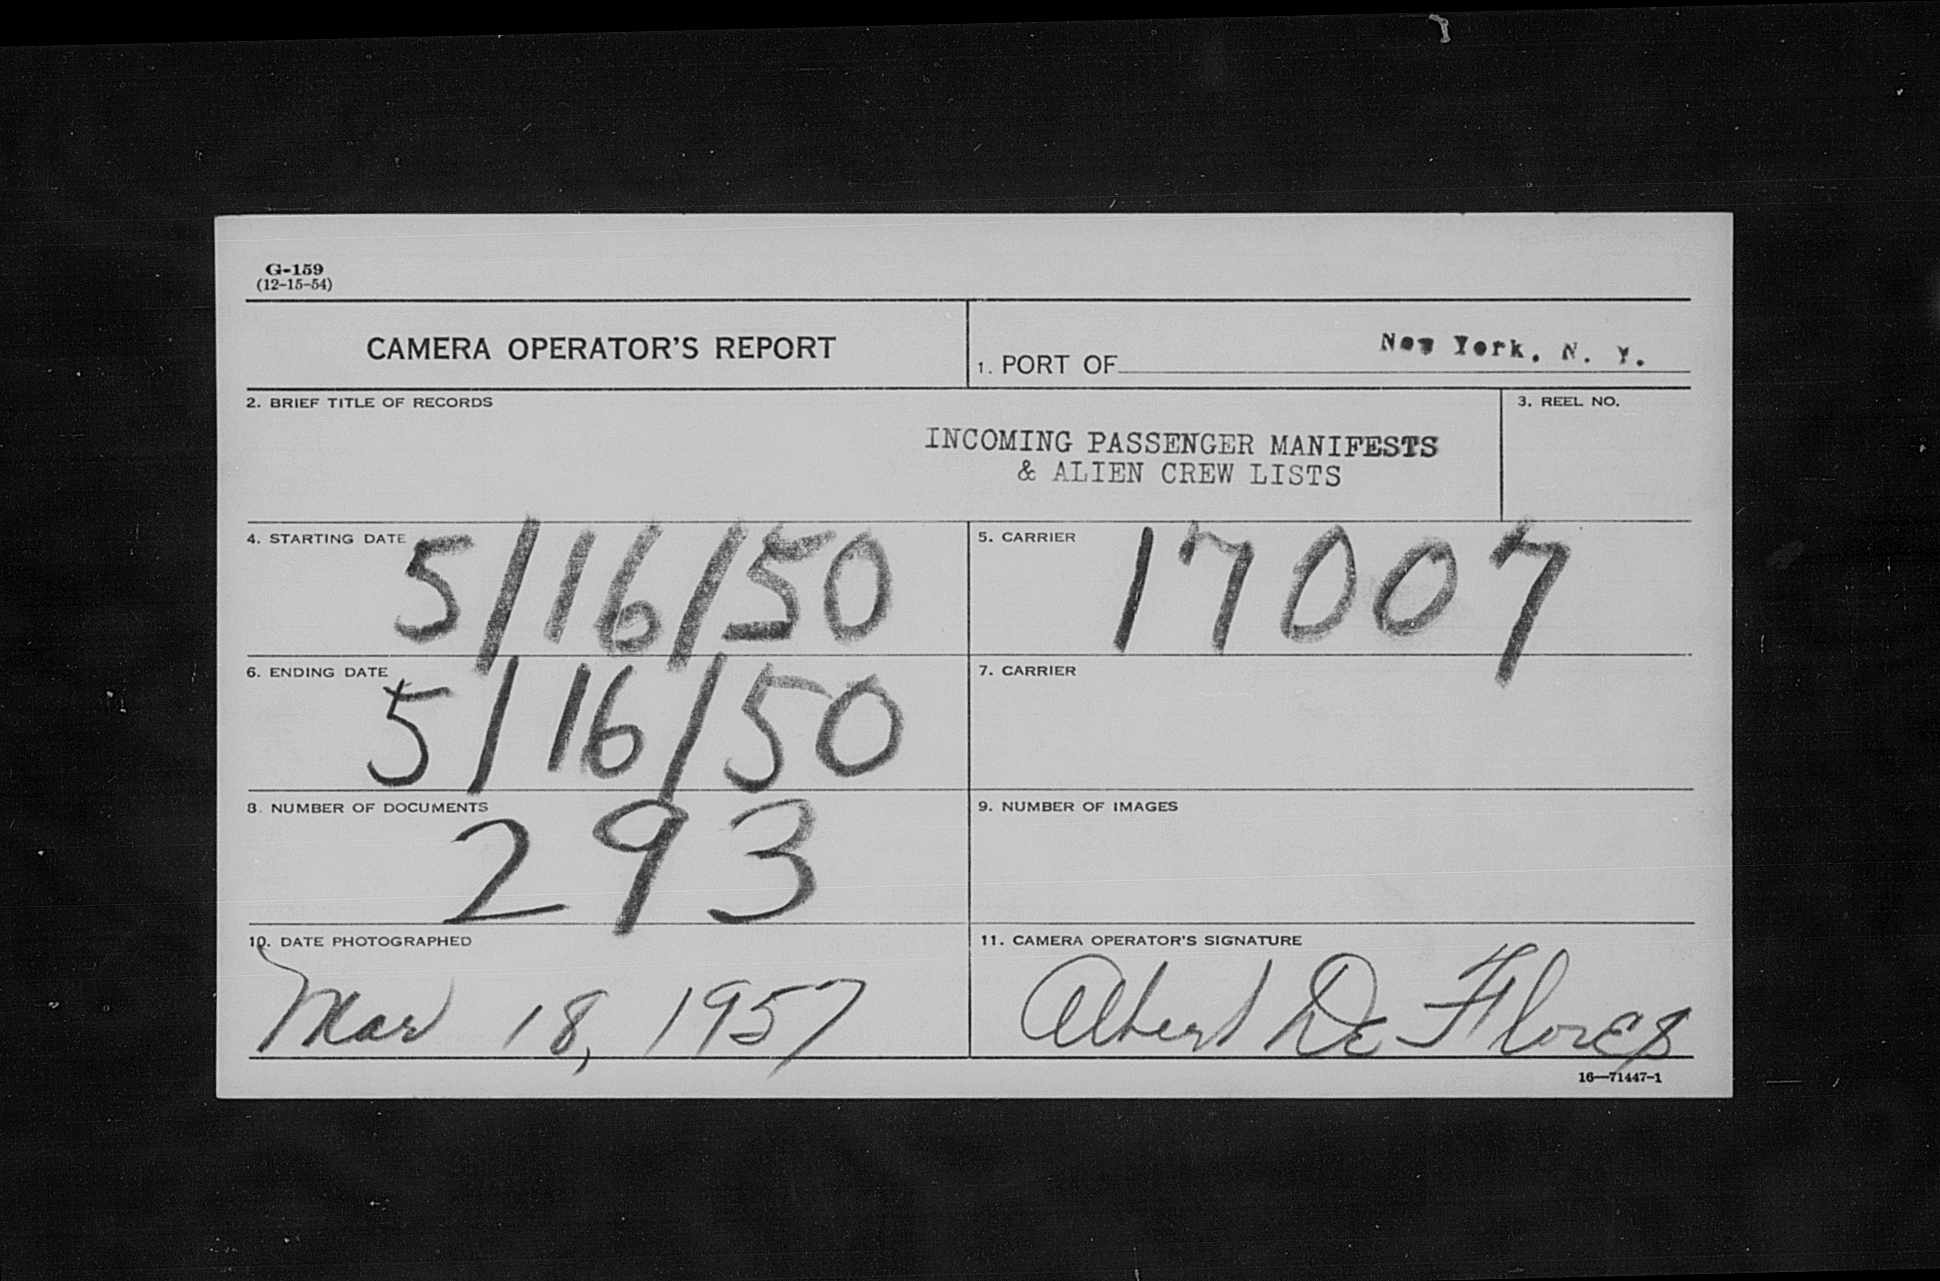 G-159
(12-15-54)
CAMERA OPERATOR'S REPORT
1. PORT OF New York, N. Y.
2. BRIEF TITLE OF RECORDS
INCOMING PASSENGER MANIFESTS
& ALIEN CREW LISTS
3. REEL NO.
4. STARTING DATE 5/16/50
5. CARRIER 17007
6. ENDING DATE 5/16/50
7. CARRIER
8. NUMBER OF DOCUMENTS 293
9. NUMBER OF IMAGES
10. DATE PHOTOGRAPHED
Mar 18, 1957
11. CAMERA OPERATOR'S SIGNATURE
Albert De Flores
16—71447-1